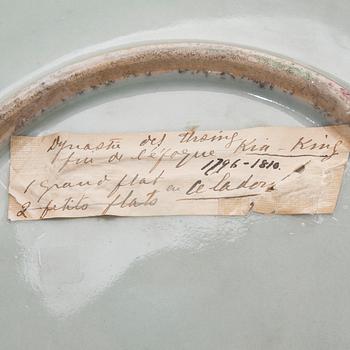 Dynastie des Tsing
fin de l'époque Kia-King
1796-1810.
1 grand plat en Celadon
2 petits plats